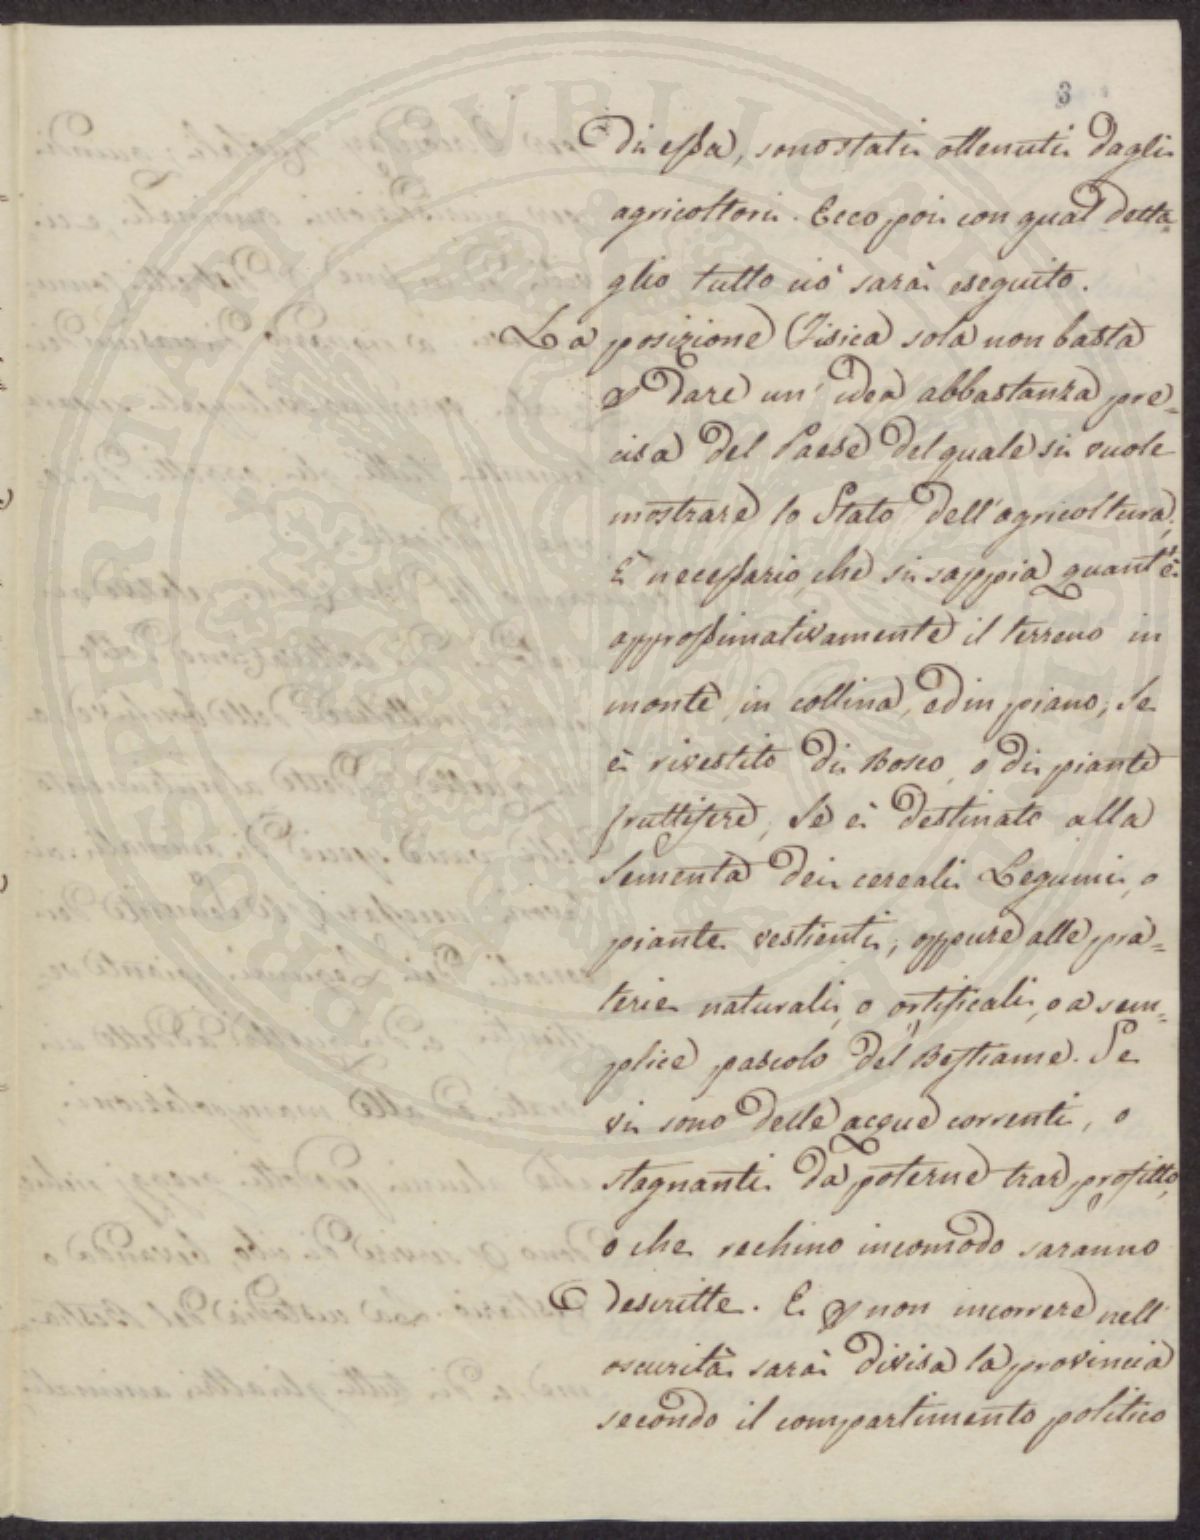 3
di essa, sono stati ottenuti dagli
agricoltori. Ecco poi con qual detta=
glio tutto ciò sarà eseguito.
La posizione Fisica sola non basta
p dare un' idea abbastanza pre=
cisa del Paese del quale si vuole
mostrare lo Stato dell'agricoltura;
È necessario, che si sappia quant'è
approssimativamente il terreno in
monte, in collina, ed in piano; Se
è rivestito di Bosco, o di piante
fruttifere; Se è destinato alla
Sementa dei cereali Legumi, o
piante vestienti; oppure alle pra=
terie naturali, o artificali, o a sem=
plice pascolo del Bestiame. Se
vi sono delle acque correnti, o
stagnanti da poterne trar profitto,
o che rechino incomodo saranno
descritte. E p non incorrere nell'
oscurità sarà divisa la provincia
secondo il compartimento politico
PROSPERITATI PVBLICAE